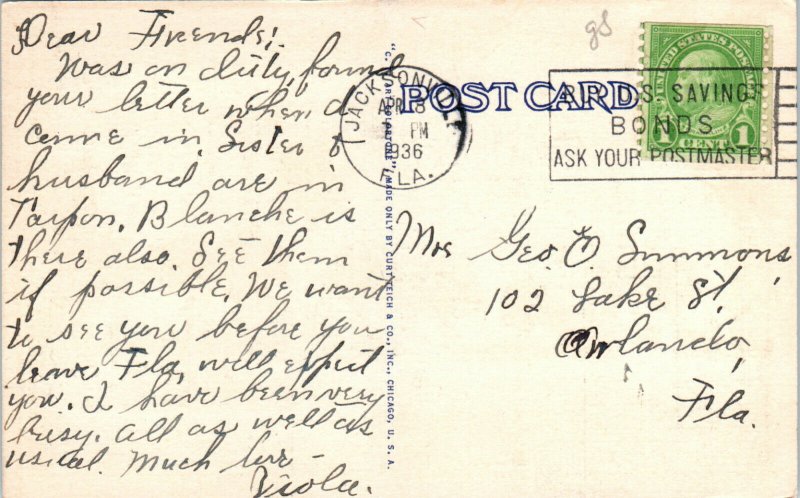 Dear Friends!
Was on duty, found
your letter when I
came in. Sister &
husband are in
Tarpon. Blanche is
there also. See them
if possible. We want
to see you before you
leave Fla, will expect
you. I have been very
busy. All as well as
usual. Much love -
Viola.
"C. T. ART-COLORTONE" (MADE ONLY BY CURT TEICH & CO., INC., CHICAGO, U. S. A.
POST CARD
JACKSONVILLE
APR 8
PM
1936
FLA.
gs
UNITED STATES POSTAGE
1 CENT 1
U.S. SAVINGS
BONDS
ASK YOUR POSTMASTER
Mrs Geo. O. Simmons,
102 Lake St.
Orlando,
Fla.